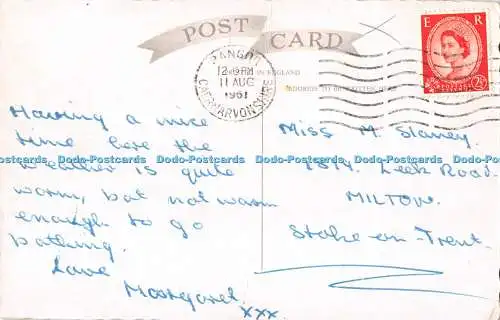 POST CARD
E R
BANGOR
12-PM
11 AUG
1961
CAERNARVONSHIRE
IN ENGLAND
ADDRESS TO
2½
Having a nice
time here the
weather is quite
warm, but not warm
enough to go
bathing.
Love
Margaret.
xxx
Miss M. Slaney
Leek Road
MILTON
Stoke-on-Trent
Dodo-Postcards Dodo-Postcards Dodo-Postcards Dodo-Postcards Dodo-Postcards
Dodo-Postcards Dodo-Postcards Dodo-Postcards Dodo-Postcards Dodo-Postcards